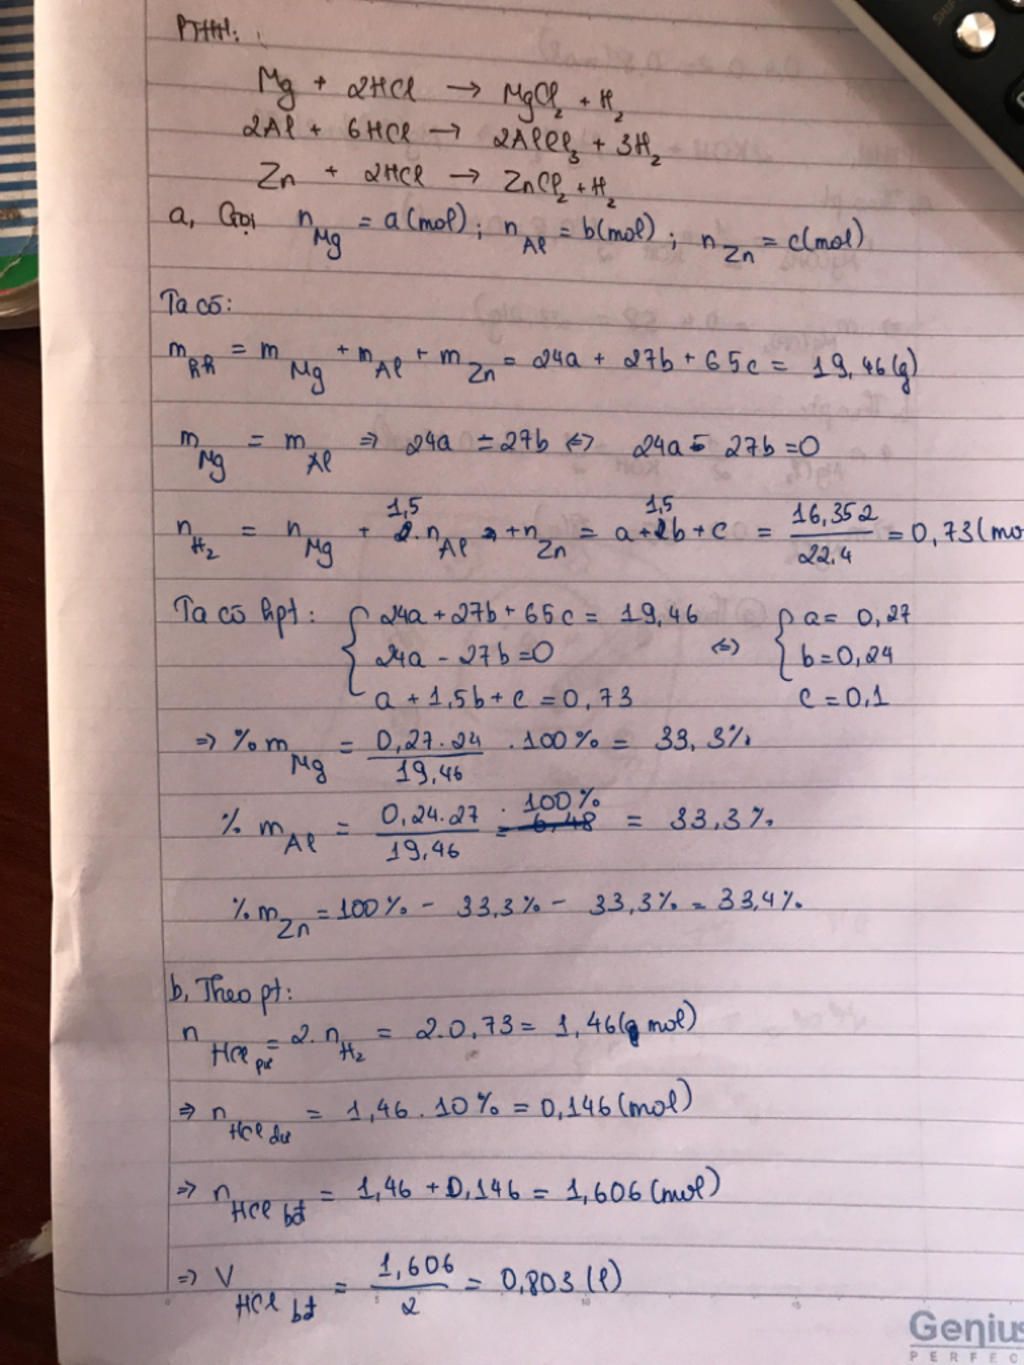 PTHH:
Mg + 2HCl → MgCl₂ + H₂
2Al + 6HCl → 2AlCl₃ + 3H₂
Zn + 2HCl → ZnCl₂ + H₂
a, Gọi n_Mg = a(mol); n_Al = b(mol); n_Zn = c(mol)
Ta có:
m_hh = m_Mg + m_Al + m_Zn = 24a + 27b + 65c = 19,46(g)
m_Mg = m_Al ⇒ 24a = 27b ⇔ 24a - 27b = 0
n_H₂ = n_Mg + 1,5 . n_Al + n_Zn = a + 1,5b + c = 16,352 / 22,4 = 0,73(mo
Ta có hpt: { 24a + 27b + 65c = 19,46 { a = 0,27
24a - 27b = 0 ⇔ b = 0,24
a + 1,5b + c = 0,73 c = 0,1
⇒ % m_Mg = 0,27.24 / 19,46 . 100% = 33,3%
% m_Al = 0,24.27 / 19,46 . 100% = 33,3%
% m_Zn = 100% - 33,3% - 33,3% = 33,4%
b, Theo pt:
n_HCl pư = 2. n_H₂ = 2.0,73 = 1,46(mol)
⇒ n_HCl dư = 1,46 . 10% = 0,146(mol)
⇒ n_HCl bđ = 1,46 + 0,146 = 1,606(mol)
⇒ V_HCl bđ = 1,606 / 2 = 0,803 (l)
Genius
PERFEC